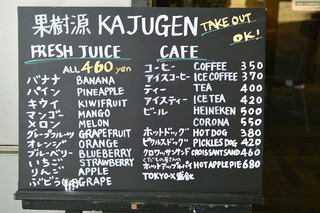 果樹源 KAJUGEN TAKE OUT OK!
FRESH JUICE
ALL 460 yen
バナナ BANANA
パイン PINEAPPLE
キウイ KIWIFRUIT
マンゴー MANGO
メロン MELON
グレープフルーツ GRAPEFRUIT
オレンジ ORANGE
ブルーベリー BLUEBERRY
いちご STRAWBERRY
りんご APPLE
ぶどう GRAPE
CAFE
コーヒー COFFEE 350
アイスコーヒー ICE COFFEE 370
ティー TEA 400
アイスティー ICE TEA 420
ビール HEINEKEN 500
CORONA 550
ホットドッグ HOT DOG 380
ピクルスドッグ PICKLES DOG 420
クロワッサンサンド CROISSANT SAND 460
ホットアップルパイ HOT APPLE PIE 680